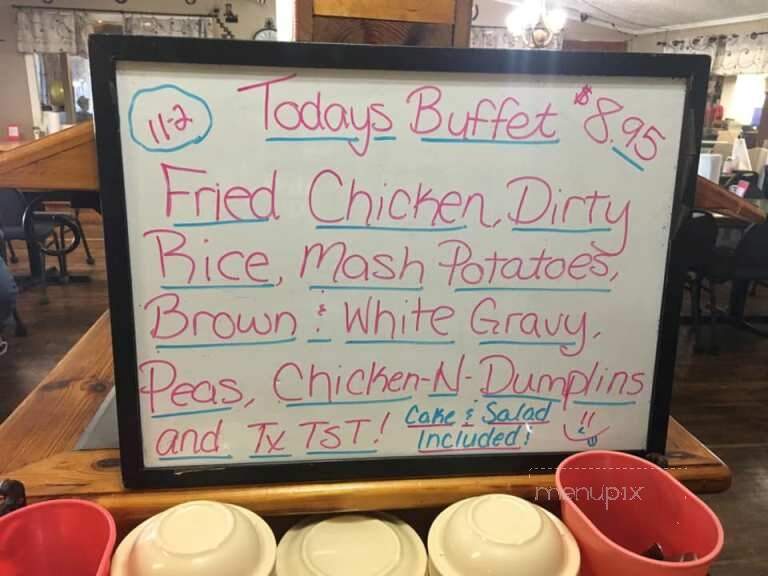 11-2
Todays Buffet $8.95
Fried Chicken, Dirty
Rice, Mash Potatoes,
Brown & White Gravy,
Peas, Chicken-N-Dumplins
and Tx TsT! Cake & Salad
Included!
menupix